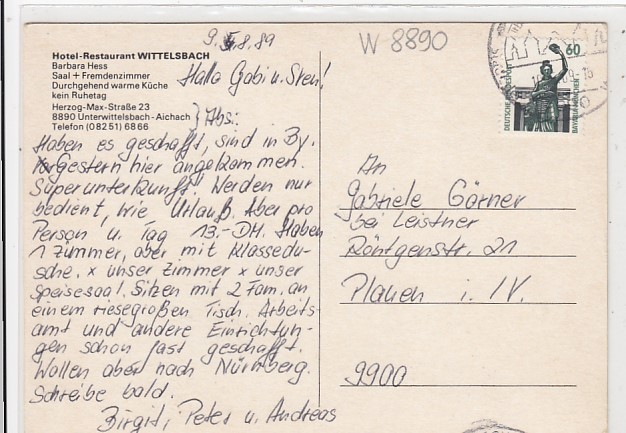 9.8.89
W-8890
Hotel-Restaurant WITTELSBACH
Barbara Hess
Saal + Fremdenzimmer
Durchgehend warme Küche
kein Ruhetag
Herzog-Max-Straße 23
8890 Unterwittelsbach-Aichach
Telefon (08251) 6866
Hallo Gabi u. Sven!
} Abs.:
Haben es geschafft, sind in By.
Vorgestern hier angekommen.
Superunterkunft. Werden nur
bedient, wie Urlaub. Aber pro
Person u. Tag 13.- DM. Haben
1 Zimmer, aber mit Klassedu-
sche. x unser Zimmer x unser
Speisesaal. Sitzen mit 2 Fam. an
einem riesegroßen Tisch. Arbeits-
amt und andere Einrichtun-
gen schon fast geschafft.
Wollen aber nach Nürnberg.
Schreibe bald.
Birgit, Peter u. Andreas
60
DEUTSCHE BUNDESPOST
BAVARIA MÜNCHEN
An
Gabriele Görner
bei Leistner
Röntgenstr. 21
Plauen i. /V.
9900